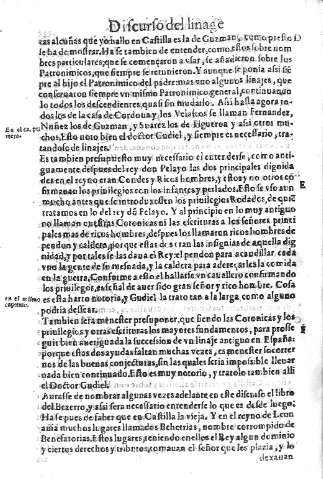 Discurso del linage
cas alcuñas que yo hallo en Castilla es la de Guzman, como presto
se ha de mostrar. Ha se tambien de entender, como estos sobre nom
bres particulares, que se començaron a vsar, se añadieron sobre los
Patronimicos, que siempre se retuuieron. Y aunque se ponia assi siẽ
pre al hijo el Patronimico del padre: mas vno algunos linajes, que
conseruaron siempre vn mismo Patronimico general, continuando
lo todos los descendientes, quasi sin mudarlo. Assi hasta agora to-
dos los de la casa de Cordoua, y los Velascos se llaman Fernandez,
Nuñez los de Guzman, y Suarez los de Figueroa y assi otros mu-
chos. Esto noto bien el doctor Gudiel, y siempre es necessario, tra-
tandose de linajes.
Es tambien presupuesto muy necessario el entenderse, como anti-
guamente despues del rey don Pelayo las dos principales dignida
des en el reyno eran Condes y Ricos hombres, y estos y no otros cõ
firmauan los priuilegios con los infantes y perlados. Esto se vso aun
mucho antes que se introduxessen los priuilegios Rodados, de quiẽ
tratamos en lo del rey dõ Pelayo. Y al principio en lo muy antiguo
no llaman nuestras Coronicas ni las escrituras a los señores princi
pales mas de ricos hombres, despues los llamaron ricos hombres de
pendon y caldera, porque estas dos eran las insignias de aquella dig
nidad, y por tales se las daua el Rey: el pendon para acaudillar cada
vno la gente de su mesnada, y la caldera para adereçarles la comida
en la guerra. Conforme a esto el hallarse vn cauallero confirmando
los priuilegios, es señal de auer sido gran señor y rico hombre. Cosa
es esta harto notoria, y Gudiel la trato tan a la larga como alguno
podria dessear.
Tambien sera menester presuponer, que siendo las Coronicas y los
priuilegios y otras escrituras los mayores fundamentos, para prose
guir bien aueriguada la succession de vn linaje antiguo en España:
porque estas dos ayudas faltan muchas vezes, es menester socorrer
nos de las buenas conjecturas, sin las quales seria impossible lleuar
nada bien continuado. Esto es muy notorio, y tratolo tambien alli
el Doctor Gudiel.
Aurasse de nombrar algunas vezes adelante en este discurso el libro
del Bezerro, y assi sera necessario entenderse lo que es desde luego.
Ha se pues de saber que en Castilla la vieja, Y en el reyno de Leon
auia muchos lugares llamados Behetrias, nombre corrompido de
Benefatorias. Estos lugares, teniendo en ellos el Rey algun dominio
y ciertos derechos y tributos, tomauan el señor que les plazia, y lo
dexauan
En el ca.
En el mismo
capitulo.